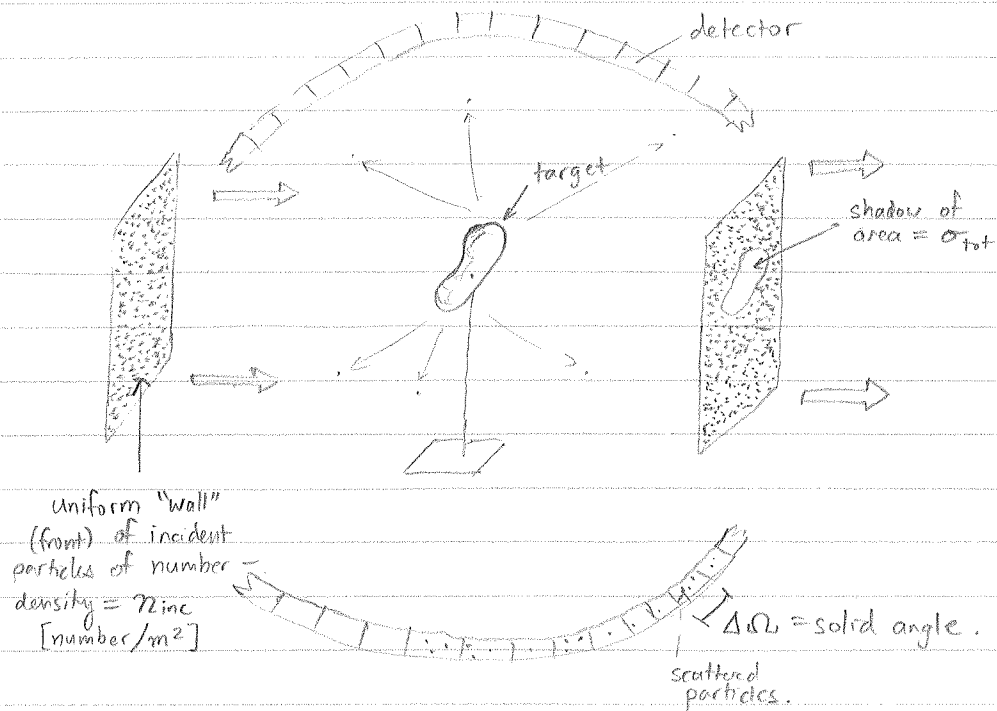 detector
target
shadow of
area = σ_tot
uniform "wall"
(front) of incident
particles of number –
density = n_inc
[number/m²]
ΔΩ = solid angle.
scattered
particles.